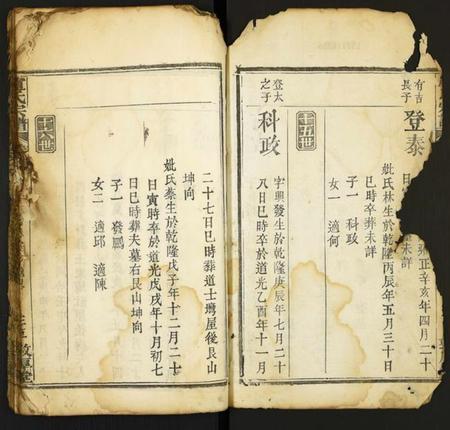 有吉
長子
登泰
正辛亥年四月二十
未詳
妣氏林生於乾隆丙辰年五月三十日
巳時卒葬未詳
子一 科政
女一 適何
十五世
登太
之子
科政
字興發生於乾隆庚辰年七月二十
八日巳時卒於道光乙酉年十一月
十六世
二十七日巳時葬道士塆屋後艮山
坤向
妣氏蔡生於乾隆戊子年十二月二十
日寅時卒於道光戊戌年十月初七
日巳時葬夫墓右艮山坤向
子一 發鵬
女二 適邱 適陳
氏宗譜